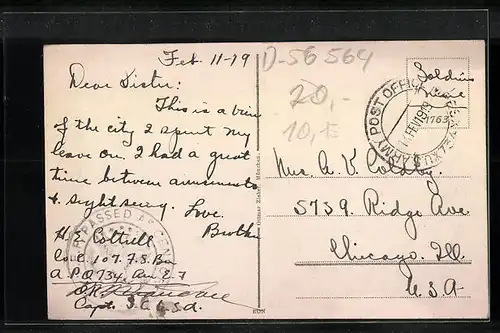 Feb. 11-19
Dear Sister:
This is a view
of the city I spent my
leave on. I had a great
time between amusements
& sight seeing.
Love.
Brother
H. Cottrell
Co. C. 107. F.S. Bn
A.P.O. 734. Am. E. F
Capt. S.C. U.S.A.
PASSED AS CENSORED
D-56 564
20,-
10,-
Soldiers
U.S. ARMY POST OFFICE
11 FEV 1919
763
Mrs. A. V. Coldby
5739 Ridge Ave
Chicago. Ill.
U.S.A